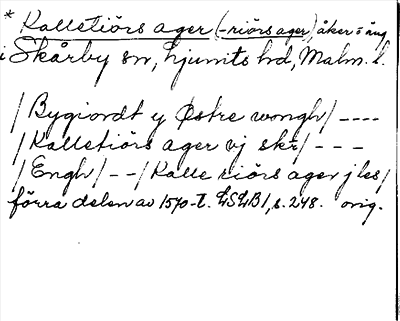 * Kalletiörs ager (-riörs ager), åker o äng
i Skårby sn, Ljunits hd, Malm. l.
/Bygiordt y Østre wongh/ ----
/Kalletiörs ager vj skr/ ---
/Engh/ --/Kalle riörs ager j les/
förra delen av 1570-t. LSLB1, s. 248. orig.